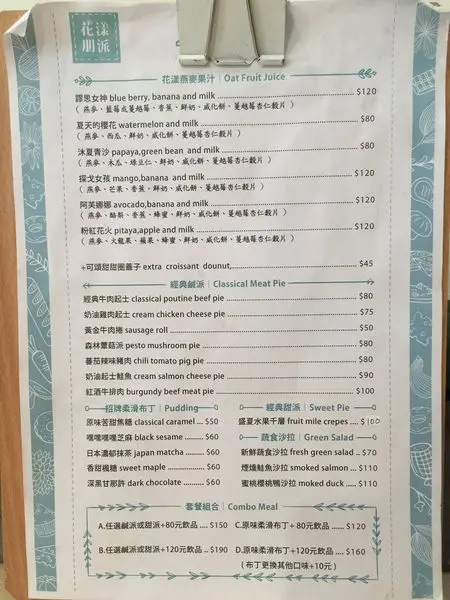 花漾
朋派
花漾燕麥果汁 | Oat Fruit Juice
謬思女神 blue berry, banana and milk $120
( 燕麥、藍莓或蔓越莓、香蕉、鮮奶、威化餅、蔓越莓杏仁穀片 )
夏天的櫻花 watermelon and milk $80
( 燕麥、西瓜、鮮奶、威化餅、蔓越莓杏仁穀片 )
沐夏青沙 papaya,green bean and milk $80
( 燕麥、木瓜、綠豆仁、鮮奶、威化餅、蔓越莓杏仁穀片 )
探戈女孩 mango,banana and milk $120
( 燕麥、芒果、香蕉、鮮奶、威化餅、蔓越莓杏仁穀片 )
阿芙娜娜 avocado,banana and milk $120
( 燕麥、酪梨、香蕉、蜂蜜、鮮奶、威化餅、蔓越莓杏仁穀片 )
粉紅花火 pitaya,apple and milk $120
( 燕麥、火龍果、蘋果、蜂蜜、鮮奶、威化餅、蔓越莓杏仁穀片 )
+可頌甜甜圈蓋子 extra croissant dounut, $45
經典鹹派 | Classical Meat Pie
經典牛肉起士 classical poutine beef pie $80
奶油雞肉起士 cream chicken cheese pie $75
黃金牛肉捲 sausage roll $50
森林蕈菇派 pesto mushroom pie $80
蕃茄辣味豬肉 chili tomato pig pie $80
奶油起士鮭魚 cream salmon cheese pie $90
紅酒牛排肉 burgundy beef meat pie $100
招牌柔滑布丁 | Pudding
原味苦甜焦糖 classical caramel $50
嘿嘿嘿嘿芝麻 black sesame $60
日本濃郁抹茶 japan matcha $60
香甜楓糖 sweet maple $60
深黑甘那許 dark chocolate $60
經典甜派 | Sweet Pie
盛夏水果千層 fruit mile crepes $100
蔬食沙拉 | Green Salad
新鮮蔬食沙拉 fresh green salad $70
煙燻鮭魚沙拉 smoked salmon $110
蜜桃櫻桃鴨沙拉 moked duck $110
套餐組合 | Combo Meal
A.任選鹹派或甜派+80元飲品 $150
C.原味柔滑布丁+ 80元飲品 $120
B.任選鹹派或甜派+120元飲品 $190
D.原味柔滑布丁+120元飲品 $160
( 布丁更換其他口味+10元 )